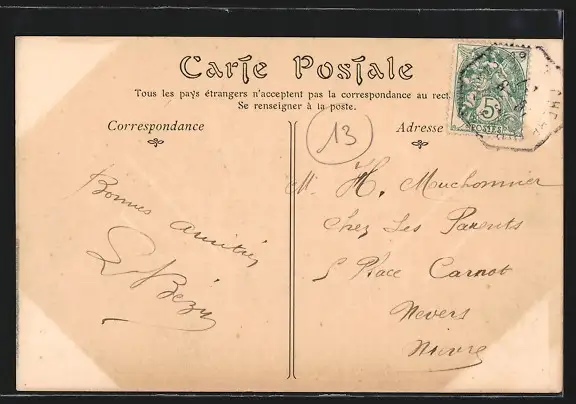 Carte Postale
Tous les pays étrangers n'acceptent pas la correspondance au rect
Se renseigner à la poste.
Correspondance
Adresse
13
5c
POSTES
Bonnes amitiés
M. H. Muchonnier
Chez Les Parents
5 Place Carnot
Nevers
Nièvre